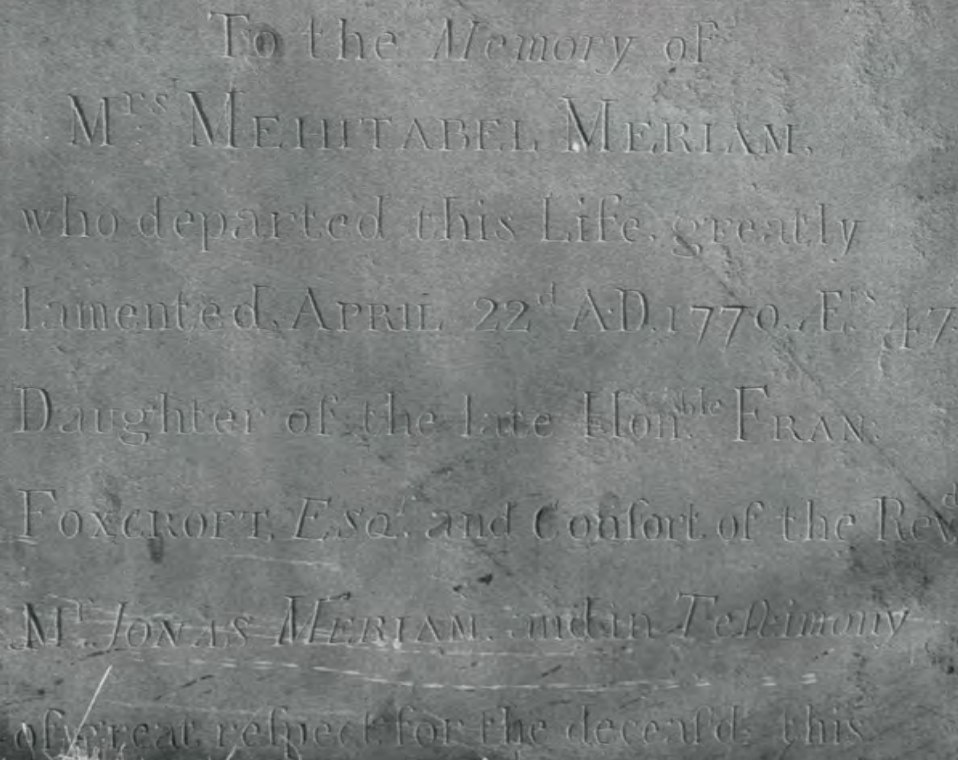 To the Memory of
Mrs. MEHITABEL MERIAM,
who departed this Life, greatly
lamented, APRIL 22d A.D. 1770. Æ.rs 47.
Daughter of the late Honble. FRAN:
FOXCROFT, Esqr. and Conſort of the Revd
Mr. JONAS MERIAM, and in Teſtimony
of great reſpect for the deceaſ'd, this